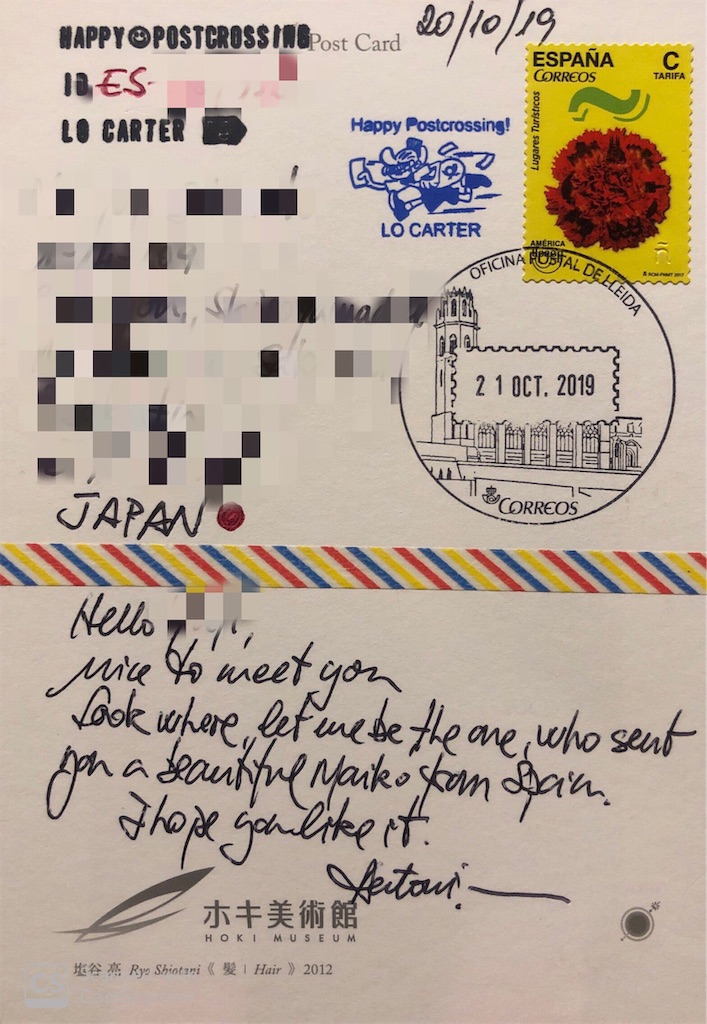 HAPPY☺POSTCROSSING
Post Card
20/10/19
ID ES-
LO CARTER
Happy Postcrossing!
LO CARTER
ESPAÑA
CORREOS
C
TARIFA
Lugares Turísticos
AMÉRICA
ñ
OFICINA POSTAL DE LLEIDA
21 OCT. 2019
CORREOS
JAPAN
Hello
nice to meet you
Look where, let me be the one, who sent
you a beautiful Maiko from Spain.
I hope you like it.
Antoni
ホキ美術館
HOKI MUSEUM
塩谷 亮 Ryo Shiotani《 髪 | Hair 》2012